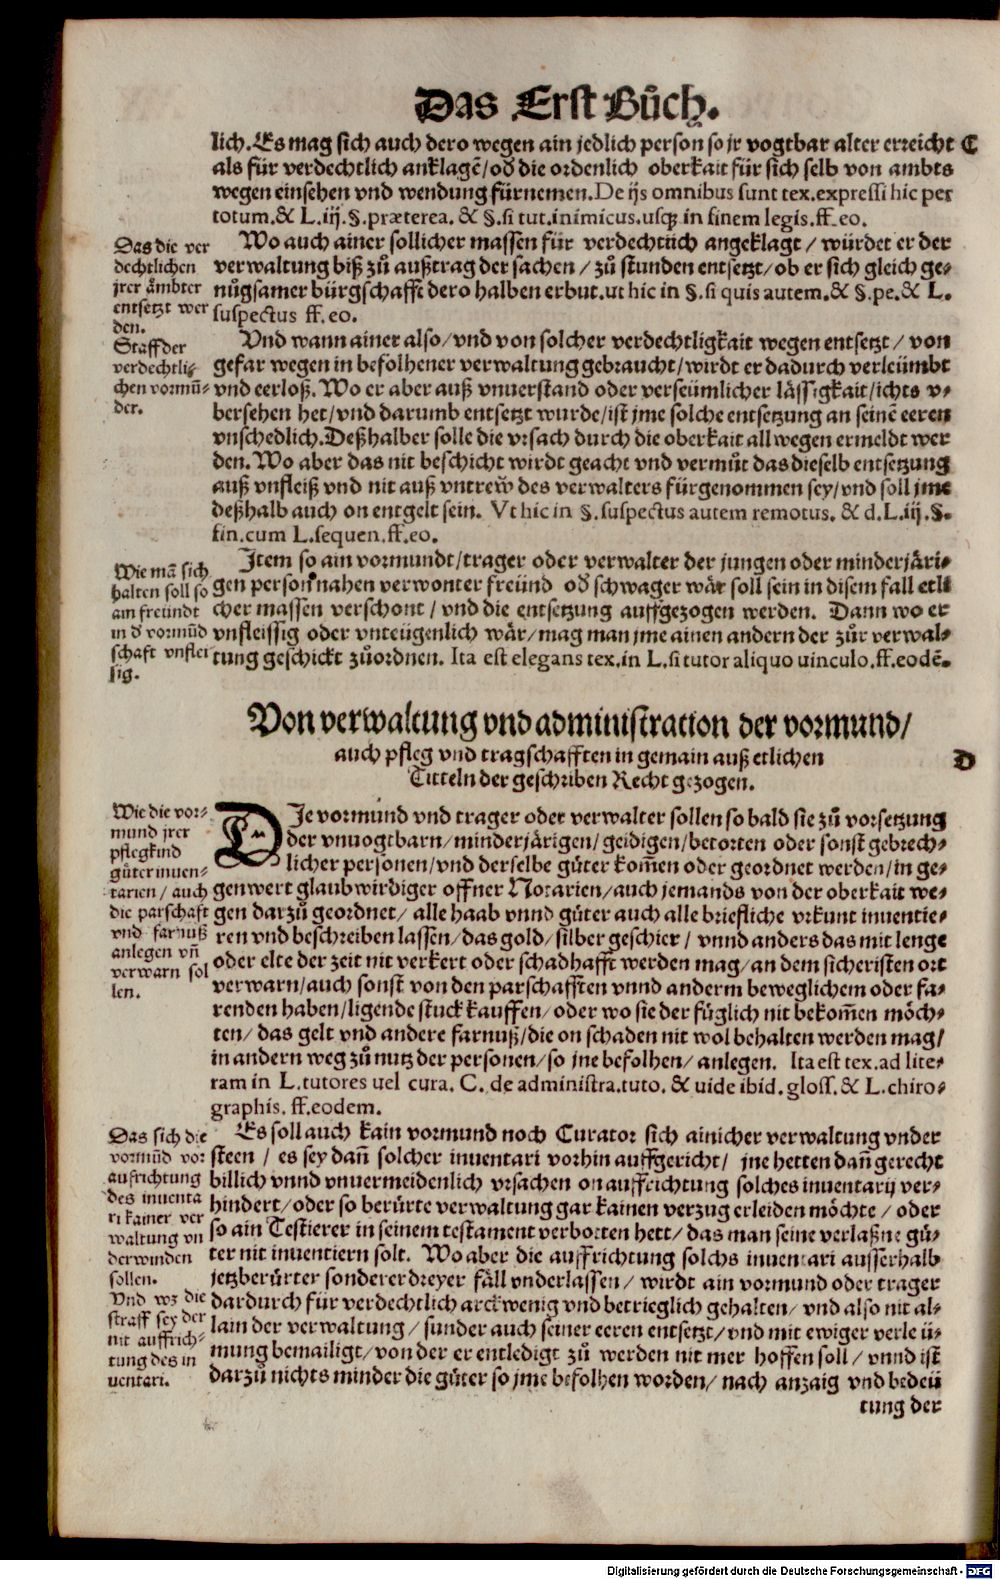 Das Erst Bůch.
lich. Es mag sich auch dero wegen ain jedlich person so jr vogtbar alter erreicht C
als für verdechtlich anklagẽ/ od̕ die ordenlich oberkait für sich selb von ambts
wegen einsehen vnd wendung fürnemen. De ijs omnibus sunt tex. expressi hic per
totum. & L. iij. §. præterea. & §. si tut. inimicus. usqꝫ in finem legis. ff. eo.
Das die ver
dechtlichen
jrer aͤmbter
entsetzt wer
den.
Wo auch ainer sollicher massen für verdechtlich angeklagt / würdet er der
verwaltung biß zů außtrag der sachen / zů stunden entsetzt/ ob er sich gleich ge-
nůgsamer bürgschafft dero halben erbut. ut hic in §. si quis autem. & §. pe. & L.
suspectus ff. eo.
Staff der
verdechtli-
chen vormũ-
der.
Vnd wann ainer also/ vnd von solcher verdechtligkait wegen entsetzt / von
gefar wegen in befolhener verwaltung gebraucht/ wirdt er dadurch verleümbt
vnd eerloß. Wo er aber auß vnuerstand oder verseümlicher lässigkait/ ichts v-
bersehen het/ vnd darumb entsetzt wurde/ ist jme solche entsetzung an seinẽ eeren
vnschedlich. Deßhalber solle die vrsach durch die oberkait allwegen ermeldt wer
den. Wo aber das nit beschicht wirdt geacht vnd vermůt das dieselb entsetzung
auß vnfleiß vnd nit auß vntreẘ des verwalters fürgenommen sey/ vnd soll jme
deßhalb auch on entgelt sein. Vt hic in §. suspectus autem remotus. & d. L. iij. §.
fin. cum L. sequen. ff. eo.
Wie mã sich
halten soll so
ain freündt
in d̕ vormũd
schaft vnflei
sig.
Item so ain vormundt/ trager oder verwalter der jungen oder minderjäri-
gen person nahen verwonter freünd od̕ schwager wär soll sein in disem fall etli
cher massen verschont / vnd die entsetzung auffgezogen werden. Dann wo er
vnfleissig oder vnteügenlich wär/ mag man jme ainen andern der zůr verwal-
tung geschickt zůordnen. Ita est elegans tex. in L. si tutor aliquo uinculo. ff. eodẽ.
Von verwaltung vnd administration der vormund/
auch pfleg vnd tragschafften in gemain auß etlichen
D
Titteln der geschriben Recht gezogen.
Wie die vor-
mund jrer
pflegkind
gůter inuen-
tarien / auch
die parschaft
vnd farnuß
anlegen vñ
verwarn sol
len.
DIe vormund vnd trager oder verwalter sollen so bald sie zů vorsetzung
der vnuogtbarn/ minderjärigen/ geidigen/ betorten oder sonst gebrech-
licher personen/ vnd derselbe gůter kom̃en oder geordnet werden/ in ge-
genwert glaubwirdiger offner Notarien/ auch jemands von der oberkait we-
gen darzů geordnet/ alle haab vnnd gůter auch alle briefliche vrkunt inuentie-
ren vnd beschreiben lassen/ das gold/ silber geschier / vnnd anders das mit lenge
oder elte der zeit nit verkert oder schadhafft werden mag/ an dem sicheristen ort
verwarn/ auch sonst von den parschafften vnnd anderm beweglichem oder fa-
renden haben/ ligende stuck kauffen/ oder wo sie der füglich nit bekom̃en möch-
ten/ das gelt vnd andere farnuß/ die on schaden nit wol behalten werden mag/
in andern weg zů nutz der personen/ so jne befolhen/ anlegen. Ita est tex. ad lite-
ram in L. tutores uel cura. C. de administra. tuto. & uide ibid. gloss. & L. chiro-
graphis. ff. eodem.
Das sich die
vormũd vor
aufrichtung
des inuenta
ri kainer ver
waltung vn
derwinden
sollen.
Vnd wz die
straff sey der
nit auffrich-
tung des in
uentari.
Es soll auch kain vormund noch Curator sich ainicher verwaltung vnder
steen / es sey dañ solcher inuentari vorhin auffgericht/ jne hetten dañ gerecht
billich vnnd vnuermeidenlich vrsachen on auffrichtung solches inuentarij ver-
hindert/ oder so berürte verwaltung gar kainen verzug erleiden möchte / oder
so ain Testierer in seinem testament verborten hett/ das man seine verlaßne gů-
ter nit inuentiern solt. Wo aber die auffrichtung solchs inuentari ausserhalb
jetzberürter sonderer dreyer fäll vnderlassen / wirdt ain vormund oder trager
dardurch für verdechtlich arckwenig vnd betrieglich gehalten/ vnd also nit al-
lain der verwaltung / sunder auch seiner eeren entsetzt/ vnd mit ewiger verleü-
mung bemailigt/ von der er entledigt zů werden nit mer hoffen soll / vnnd ist
darzů nichts minder die gůter so jme befolhen worden/ nach anzaig vnd bedeü
tung der
Digitalisierung gefördert durch die Deutsche Forschungsgemeinschaft - DFG